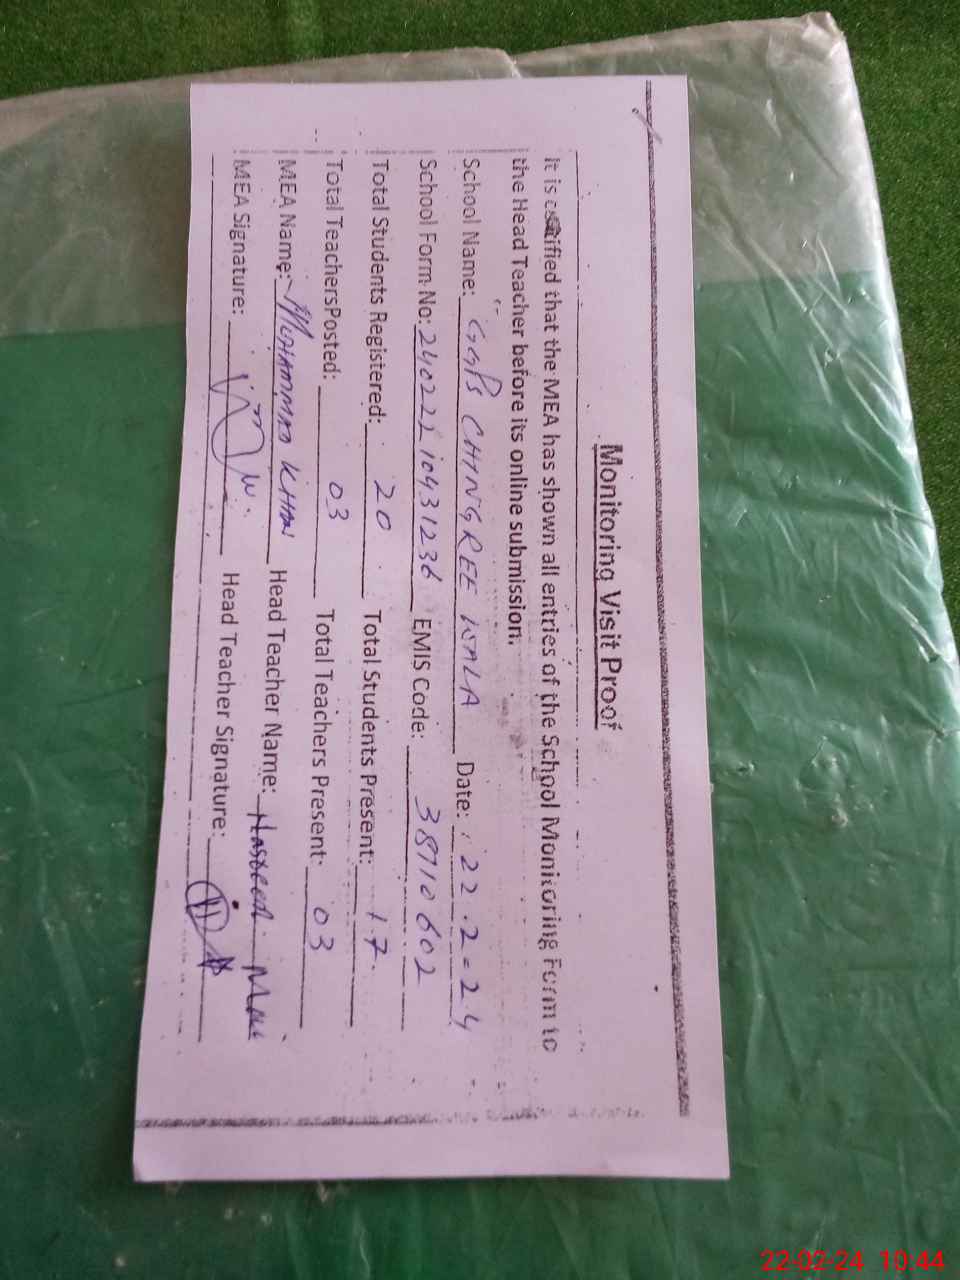 Monitoring Visit Proof
It is certified that the MEA has shown all entries of the School Monitoring Form to
the Head Teacher before its online submission.
School Name: GGPS CHINGREE WALA Date: 22.2-24
School Form No: 240222 10931236 EMIS Code: 38710602
Total Students Registered: 20 Total Students Present: 17
Total TeachersPosted: 03 Total Teachers Present: 03
MEA Name: MUHAMMAD KHAN Head Teacher Name:
MEA Signature: Head Teacher Signature:
22-02-24 10:44